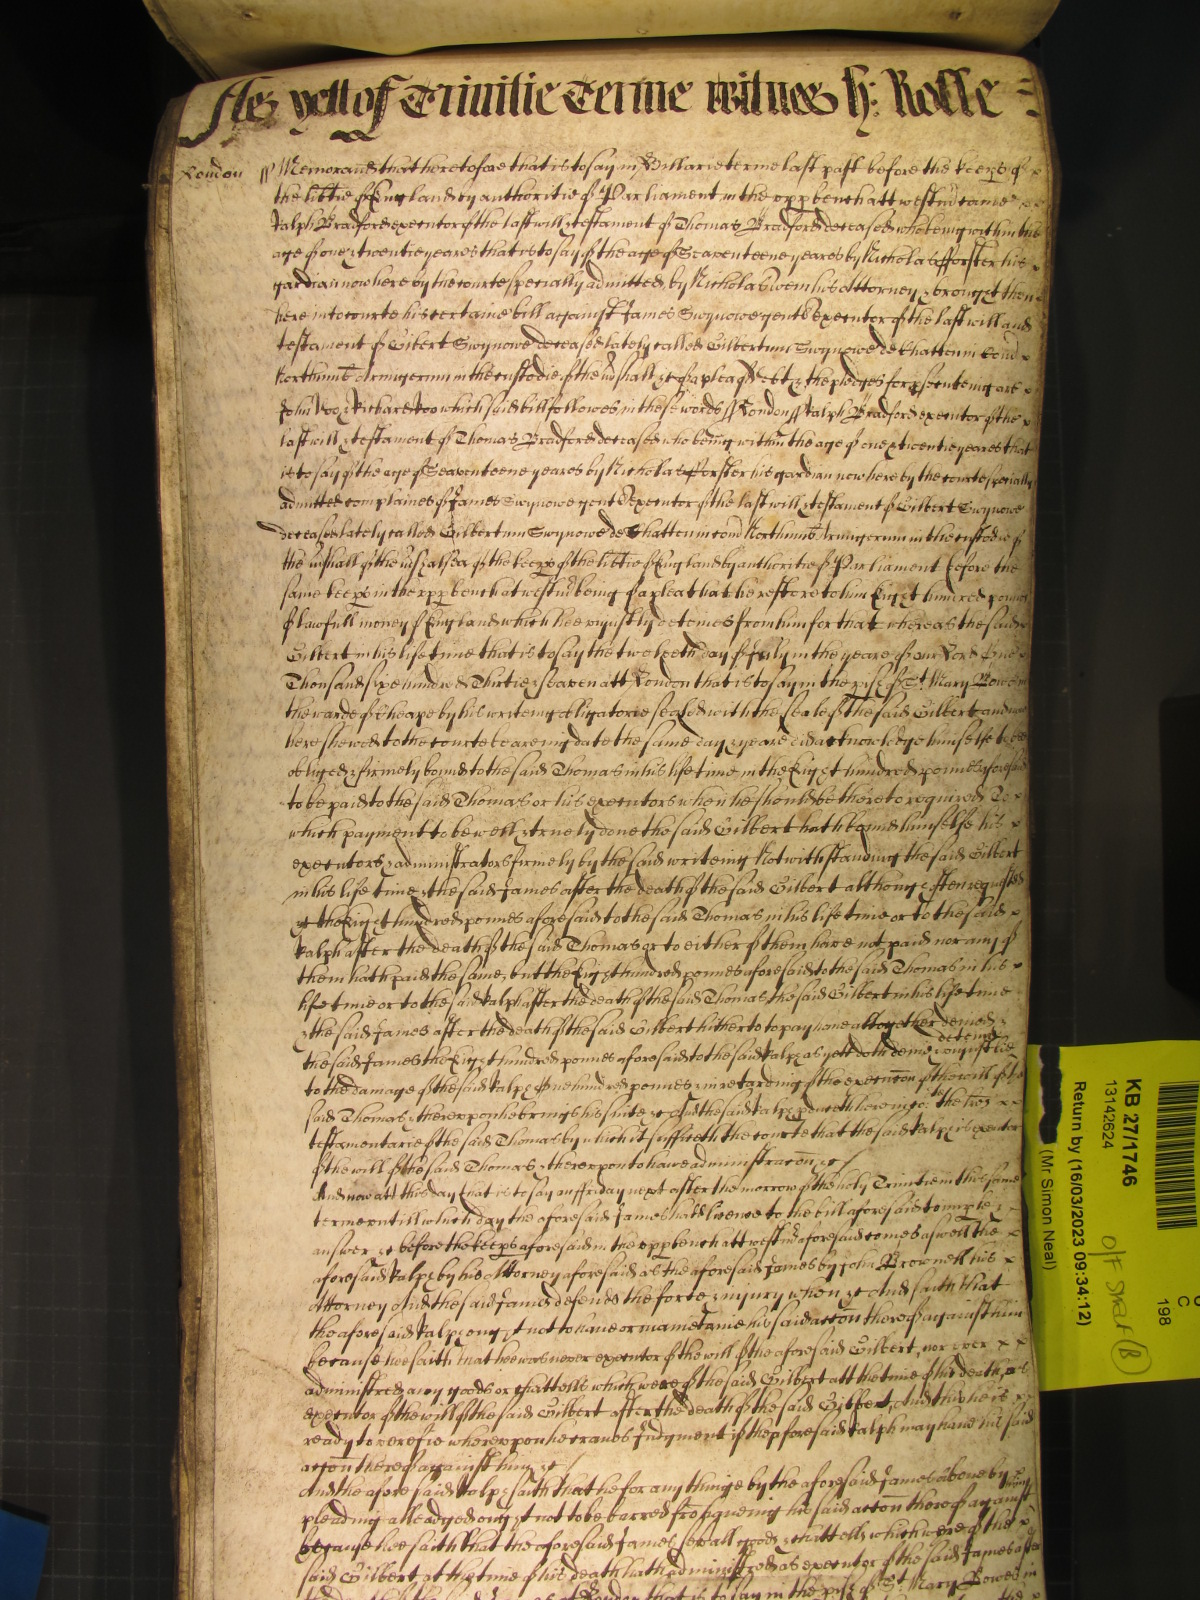 As yett of Trinitie Terme witnes H: Rolle
London ss Memorand that heretofore that is to say in Hillarie terme last past before the keeps of
the libtie of England by authoritie of Parliament in the upp bench att westm came
Ralph Bradford executor of the last will & testament of Thomas Bradford deceased who being within the
age of one & twentie yeares that is to say of the age of Seaventeene yeares by Nicholas fforster his
gardian now here by the courte specially admitted by Nicholas Owen his Attorney & brought then
here into courte his certaine bill against James Swynowe gent Executor of the last will and
testament of Gilbert Swynowe deceased lately called Gilbertum Swynowe de Chatton in Com
Northumb Armigerum in the custodie of the mshall &c of a plea of debt & the pledges for psecuteing are
John Doo & Richard Roo which said bill followes in these words ss London ss Ralph Bradford executor of the
last will & testament of Thomas Bradford deceased who being within the age of one & twentie yeares that
is to say of the age of Seaventeene yeares by Nicholas fforster his gardian now here by the courte specially
admitted complaines of James Swynowe gent Executor of the last will & testament of Gilbert Swynowe
deceased lately called Gilbertum Swynowe de Chatton in Com Northumb Armigerum in the custodie of
the mshall of the mshalsea of the keeps of the libtie of England by authoritie of Parliament before the
same keeps in the upp bench at westm being of a plea that he restore to him Eight hundred pounds
of lawfull money of England which hee unjustly deteines from him for that whereas the said
Gilbert in his life time that is to say the twelveth day of July in the yeare of our Lord One
Thousand six hundred Thirtie & seaven att London that is to say in the pish of St Mary Bowe in
the warde of Cheape by his writeing obligatorie sealed with the seale of the said Gilbert and now
here shewed to the courte beareing date the same day & yeare did acknowledge himselfe to bee
obliged & firmely bound to the said Thomas in his life time in the Eight hundred pounds aforesaid
to be paid to the said Thomas or his executors when he should be thereto required To
which payment to be well & truely done the said Gilbert hath bound himselfe his
executors & administrators firmely by the said writeing Notwithstanding the said Gilbert
in his life time & the said James after the death of the said Gilbert although often requested
&c the Eight hundred pounds aforesaid to the said Thomas in his life time or to the said
Ralph after the death of the said Thomas or to either of them have not paid nor any of
them hath paid the same but the Eight hundred pounds aforesaid to the said Thomas in his
life time or to the said Ralph after the death of the said Thomas the said Gilbert in his life time
& the said James after the death of the said Gilbert hitherto to pay have altogether denied &
the said James the Eight hundred pounds aforesaid to the said Ralph as yett doth deny & unjustlie deteine
to the damage of the said Ralph of one hundred pounds & in retarding of the execucon of the will of the
said Thomas & thereupon he brings his suite &c And the said Ralph pduceth here into the lres
testamentarie of the said Thomas by which it sufficeth the courte that the said Ralph is executor
of the will of the said Thomas & thereupon to have administracon &c
And now att this day that is to say on ffriday next after the morrow of the holy Trinitie in this same
terme untill which day the aforesaid James hadd licence to the bill aforesaid to imple &
answer &c before the keeps aforesaid in the upp bench att westm aforesaid comes aswell the
aforesaid Ralph by his Attorney aforesaid as the aforesaid James by John Brownell his
Attorney And the said James defends the force & injury when &c And saith that
the aforesaid Ralph ought not to have or mainetaine his said accon thereof against him
because hee saith that hee was never executor of the will of the aforesaid Gilbert, nor ever
administred any goods or chattells which were of the said Gilbert att the time of his death as
executor of the will of the said Gilbert after the death of the said Gilbert, And this he is
ready to verefie whereupon he craves Judgment if the aforesaid Ralph may have his said
accon thereof against him &c
And the aforesaid Ralph saith that he for any thinge by the aforesaid James above by
pleading alleadged ought not to be barred fro haveing his said accon thereof against
because hee saith that the aforesaid James sevall goods & chattells which were of the
said Gilbert at the time of his death hath administred as executor of the said James after
London that is to say in the pish of St Mary Bowe in
KB 27/1746
13142624
Return by (16/03/2023 09:34:12)
(Mr Simon Neal)
198
C